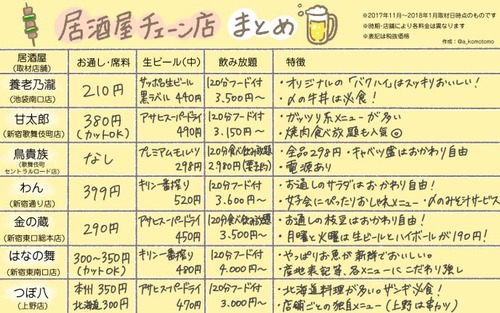 居酒屋チェーン店 まとめ
※2017年11月～2018年1月取材日時点のものです
※時期・店舗により各料金は異なります
※表記は税抜価格
作成：@a_komotomo
居酒屋
(取材店舗)
お通し・席料
生ビール(中)
飲み放題
特徴
養老乃瀧
(池袋南口店)
210円
サッポロ生ビール
黒ラベル 440円
120分フード付
3,500円～
・オリジナルの「バクハイ」はスッキリおいしい!
・〆の牛丼は必食!
甘太郎
(新宿歌舞伎町店)
380円
(カットOK)
アサヒスーパードライ
490円
120分フード付
3,150円～
・ガッツリ系メニューが多い
・焼肉食べ放題も人気◎
鳥貴族
(歌舞伎町
セントラルロード店)
なし
プレミアムモルツ
298円
120分食べ飲み放題
2,980円(要予約)
・全品298円・キャベツ盛はおかわり自由
・電源あり
わん
(新宿通り店)
399円
キリン一番搾り
520円
120分フード付
3,600円～
・お通しのサラダはおかわり自由!
・女子会にぴったりおしゃれメニュー・〆のみそ汁サービス
金の蔵
(新宿東口総本店)
290円
アサヒスーパードライ
450円
120分食べ飲み放題
3,500円～
・お通しの枝豆はおかわり自由!
・月曜と火曜は生ビールとハイボールが190円!
はなの舞
(新宿東南口店)
300～350円
(カットOK)
キリン一番搾り
480円
120分フード付
4,000円～
・やっぱりお魚が新鮮でおいしい。
・産地表記等、各メニューにこだわり強し
つぼ八
(上野店)
本州 350円
北海道 300円
アサヒスーパードライ
470円
120分フード付
3,000円～
・北海道料理が多い。ザンギ必食!
・店舗ごとの独自メニュー(上野は串カツ)